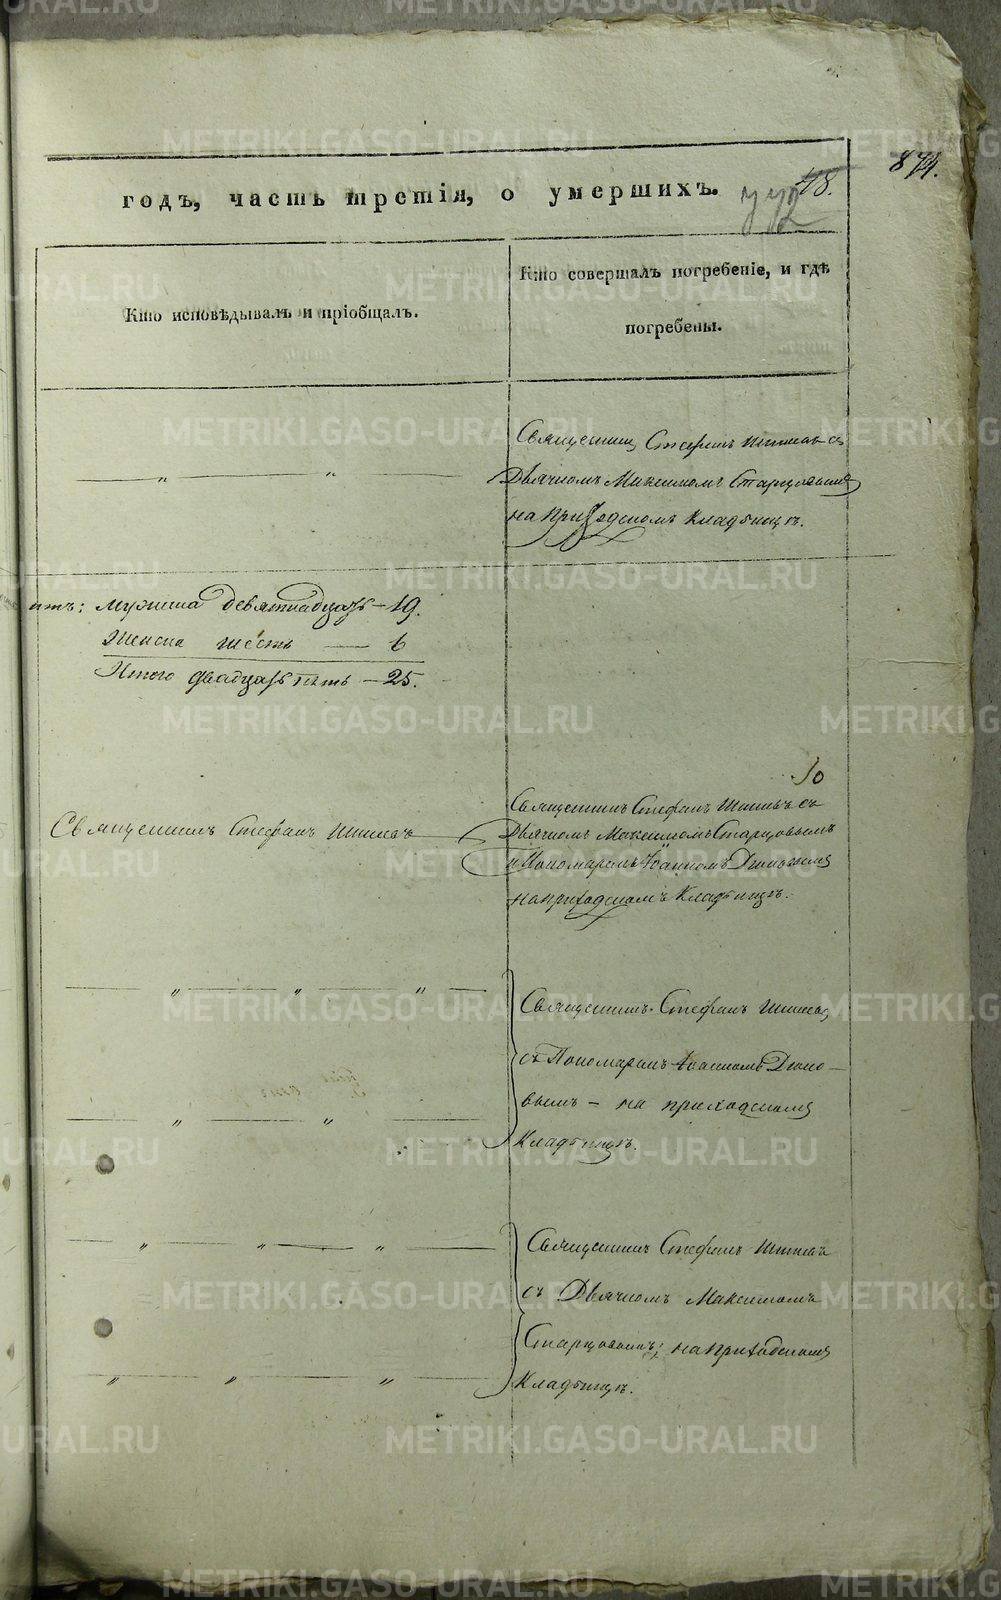 874.
годъ, часть третія, о умершихъ.
48.
442
Кто исповѣдывалъ и пріобщалъ.
Кто совершалъ погребеніе, и гдѣ
погребены.
Священникъ Стефанъ съ
Дьячкомъ Максимомъ Старцовымъ
на приходскомъ кладбищѣ.
мужеска девятнадцать — 19.
Женска шесть — 6
Итого двадцать пять — 25.
10
Священникъ Стефанъ
Священникъ Стефанъ съ
Дьячкомъ Максимомъ Старцовымъ
и Пономаремъ Іоанномъ
на приходскомъ Кладбищѣ.
Священникъ Стефанъ
съ Пономаремъ Іоанномъ
вымъ — на приходскомъ
Кладбищѣ.
Священникъ Стефанъ
съ Дьячкомъ Максимомъ
Старцовымъ: на приходскомъ
Кладбищѣ.
METRIKI.GASO-URAL.RU